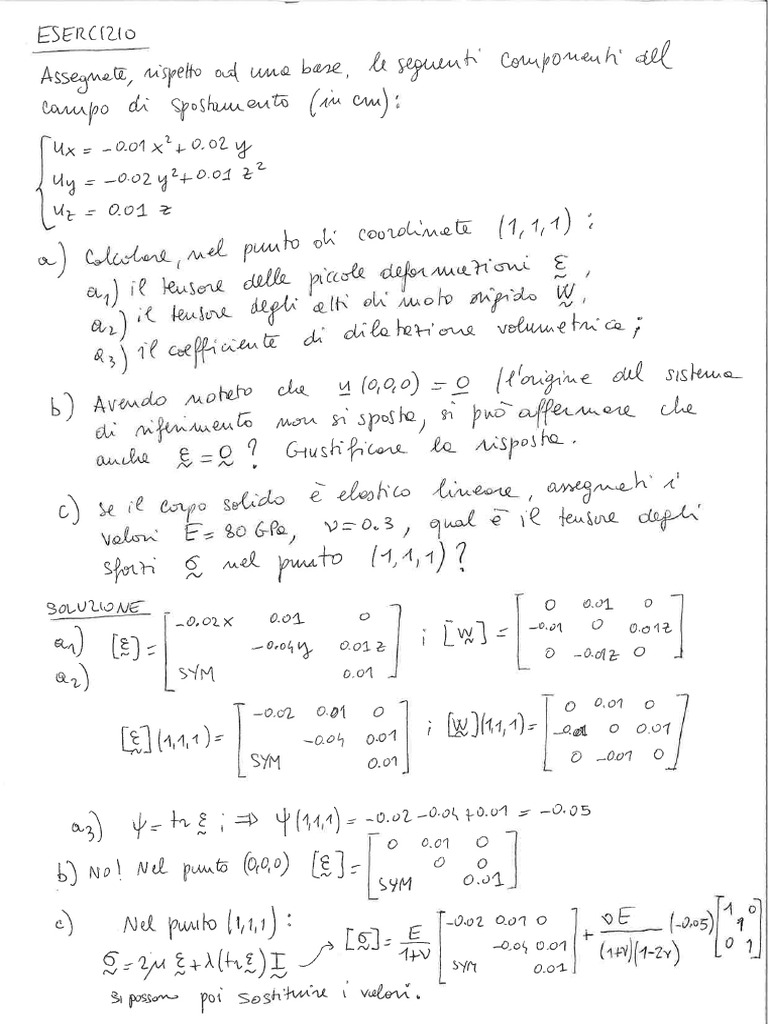 ESERCIZIO
Assegnate, rispetto ad una base, le seguenti componenti del
campo di spostamento (in cm):
{ ux = -0.01 x² + 0.02 y
uy = -0.02 y² + 0.01 z²
uz = 0.01 z
a) Calcolare, nel punto di coordinate (1,1,1):
a1) il tensore delle piccole deformazioni ε,
a2) il tensore degli atti di moto rigido W,
a3) il coefficiente di dilatazione volumetrica;
b) Avendo notato che u(0,0,0) = 0 (l'origine del sistema
di riferimento non si sposta, si può affermare che
anche ε = 0? Giustificare la risposta.
c) Se il corpo solido è elastico lineare, assegnati i
valori E = 80 GPa, ν = 0.3, qual è il tensore degli
sforzi σ nel punto (1,1,1)?
SOLUZIONE
a1) a2) [ε] = [-0.02x 0.01 0; -0.04y 0.01z; SYM 0.01] ; [W] = [0 0.01 0; -0.01 0 0.01z; 0 -0.01z 0]
[ε](1,1,1) = [-0.02 0.01 0; -0.04 0.01; SYM 0.01] ; [W](1,1,1) = [0 0.01 0; -0.01 0 0.01; 0 -0.01 0]
a3) ψ = tr ε ; ⇒ ψ(1,1,1) = -0.02 -0.04 +0.01 = -0.05
b) NO! Nel punto (0,0,0) [ε] = [0 0.01 0; 0 0; SYM 0.01]
c) Nel punto (1,1,1):
σ = 2μ ε + λ(tr ε) I → [σ] = E/(1+ν) [-0.02 0.01 0; -0.04 0.01; SYM 0.01] + νE/((1+ν)(1-2ν)) (-0.05) [1 0; 1; 0 1]
si possono poi sostituire i valori.